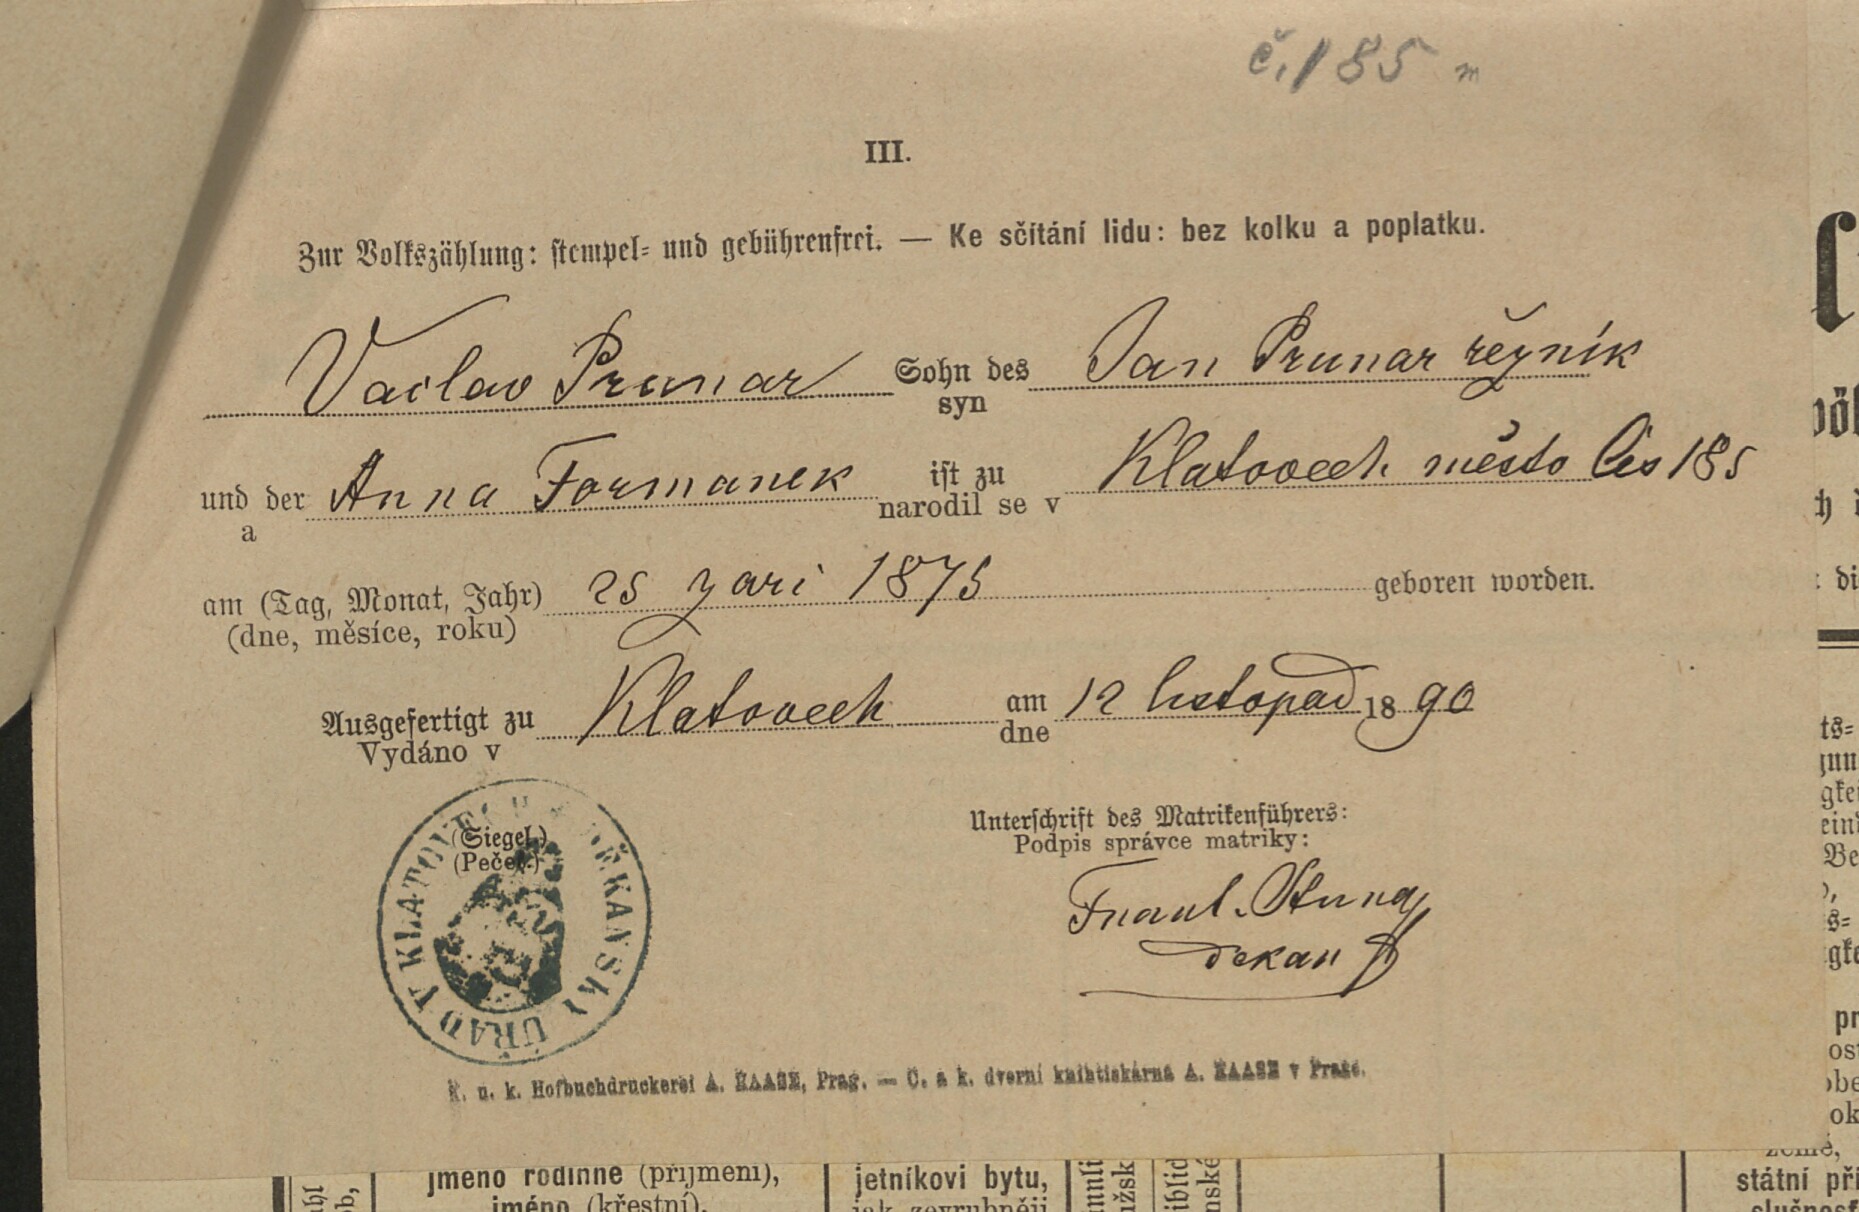 č. 185
III.
Zur Volkszählung: stempel- und gebührenfrei. — Ke sčítání lidu: bez kolku a poplatku.
Vaclav Prunar Sohn des Jan Prunar řezník
syn
und der Anna Formanek ist zu Klatovech město čis 185
a narodil se v
am (Tag, Monat, Jahr) 25 zari 1875 geboren worden.
(dne, měsíce, roku)
Ausgefertigt zu Klatovech am 12 listopad 1890
Vydáno v dne
(Siegel.)
(Pečeť.)
DĚKANSKÝ ÚŘAD V KLATOVECH
Unterschrift des Matrikenführers:
Podpis správce matriky:
Frant.
Dekan
K. u. k. Hofbuchdruckerei A. HAASE, Prag. — C. a k. dvorní knihtiskárna A. HAASE v Praze.
jméno rodinné (příjmení),
jméno (křestní),
jetníkovi bytu,
jak zevrubněji
země,
státní pří